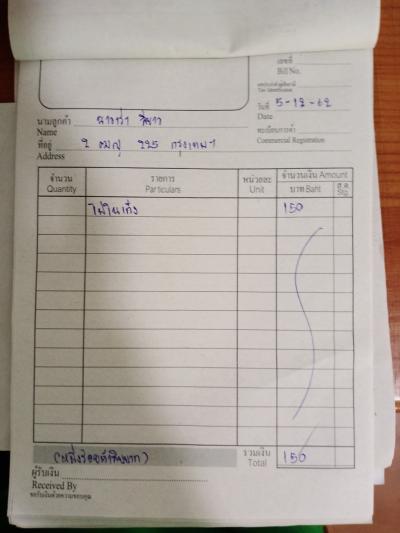 เลขที่
Bill No.
เลขประจำตัวผู้เสียภาษี
Tax Identification
วันที่ 5-12-62
Date
นามลูกค้า
Name
ทะเบียนการค้า
Commercial Registration
ที่อยู่ 2 225 กรุงเทพฯ
Address
จำนวน รายการ หน่วยละ จำนวนเงิน Amount
Quantity Particulars Unit บาท Baht ส.ต. Stg.
150
(หนึ่งร้อยห้าสิบบาท) รวมเงิน 150
Total
ผู้รับเงิน
Received By
ขอรับเงินด้วยความขอบคุณ